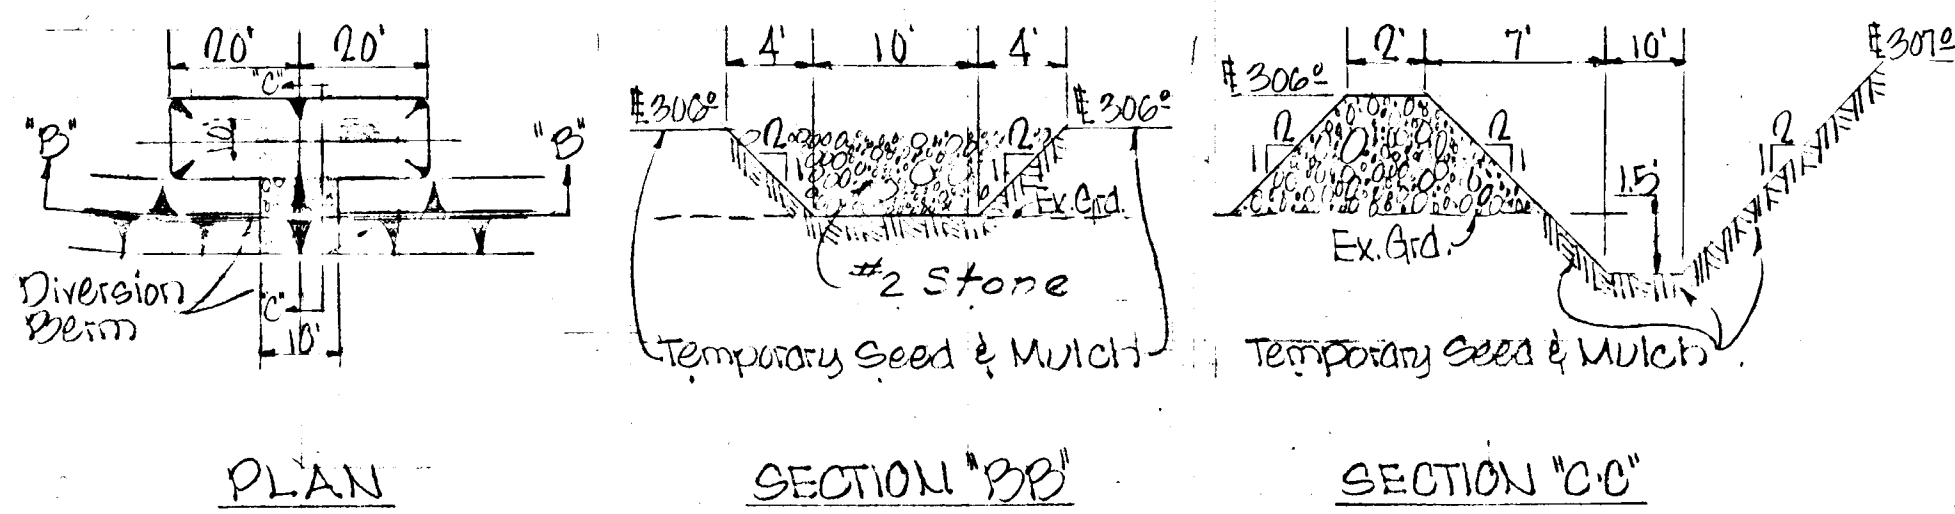 20' 20'
"C"
"B" 10' "B"
Diversion
Berm
"C"
10'
PLAN
4' 10' 4'
℄ 306⁰ ℄ 306⁰
2 2
1 1
Ex. Grd.
#2 Stone
Temporary Seed & Mulch
SECTION "BB"
2' 7' 10'
℄ 306⁰ ℄ 307⁰
2 2 2
1 1 1
1.5'
Ex. Grd.
Temporary Seed & Mulch
SECTION "C-C"